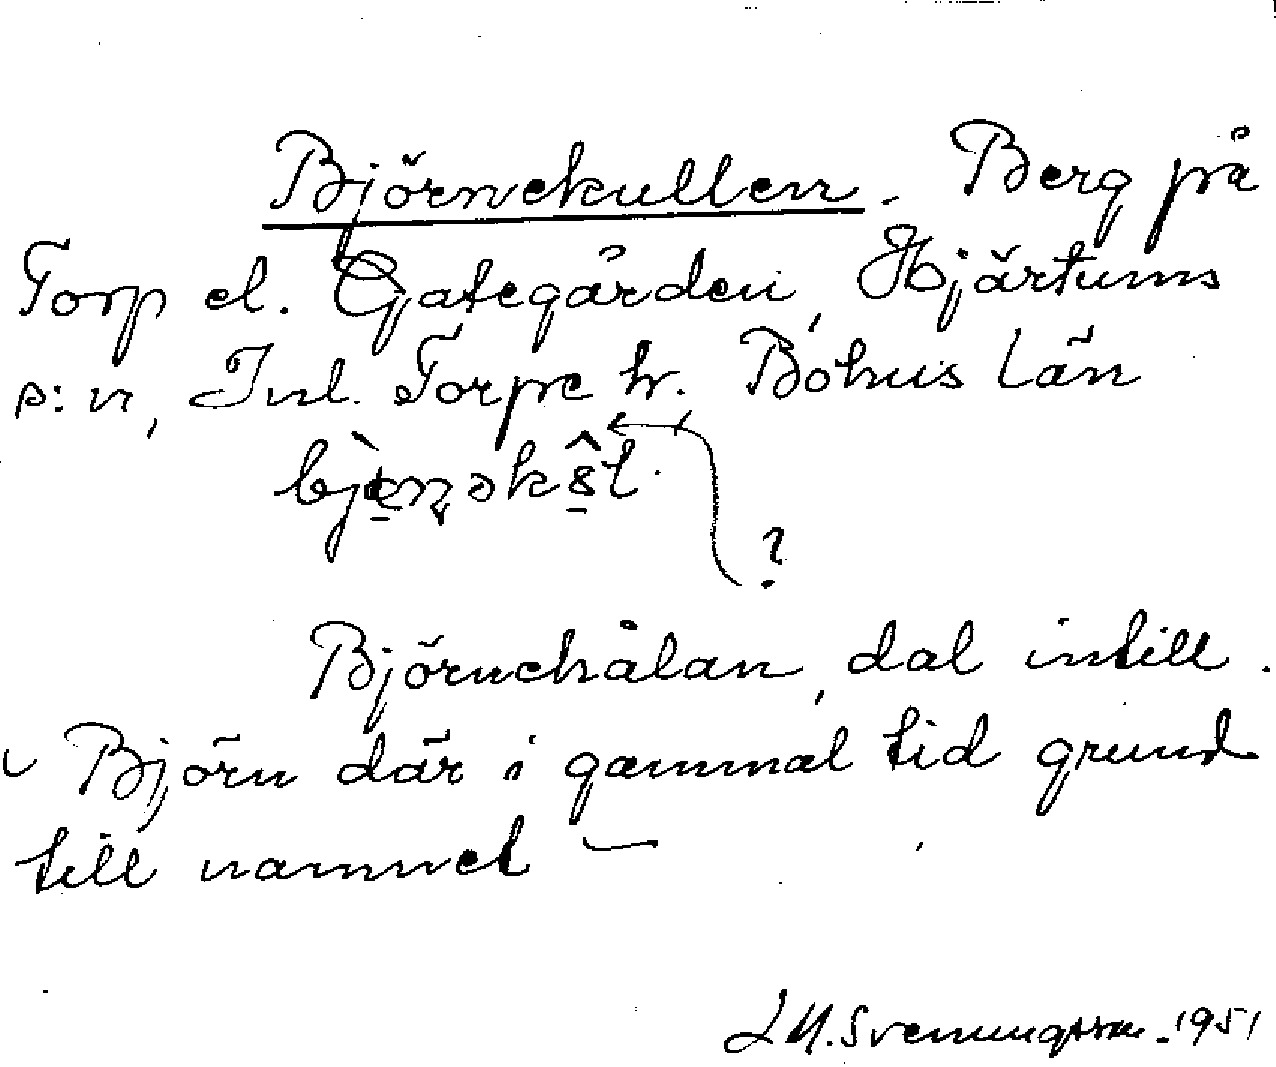 Björnekullen. Berg på
Torp el. Gategården, Hjärtums
s:n, Inl. Torpe hr. Bohus län
?
Björnehålan, dal intill.
Björn där i gammal tid grund
till namnet –
Svenungsson. 1951